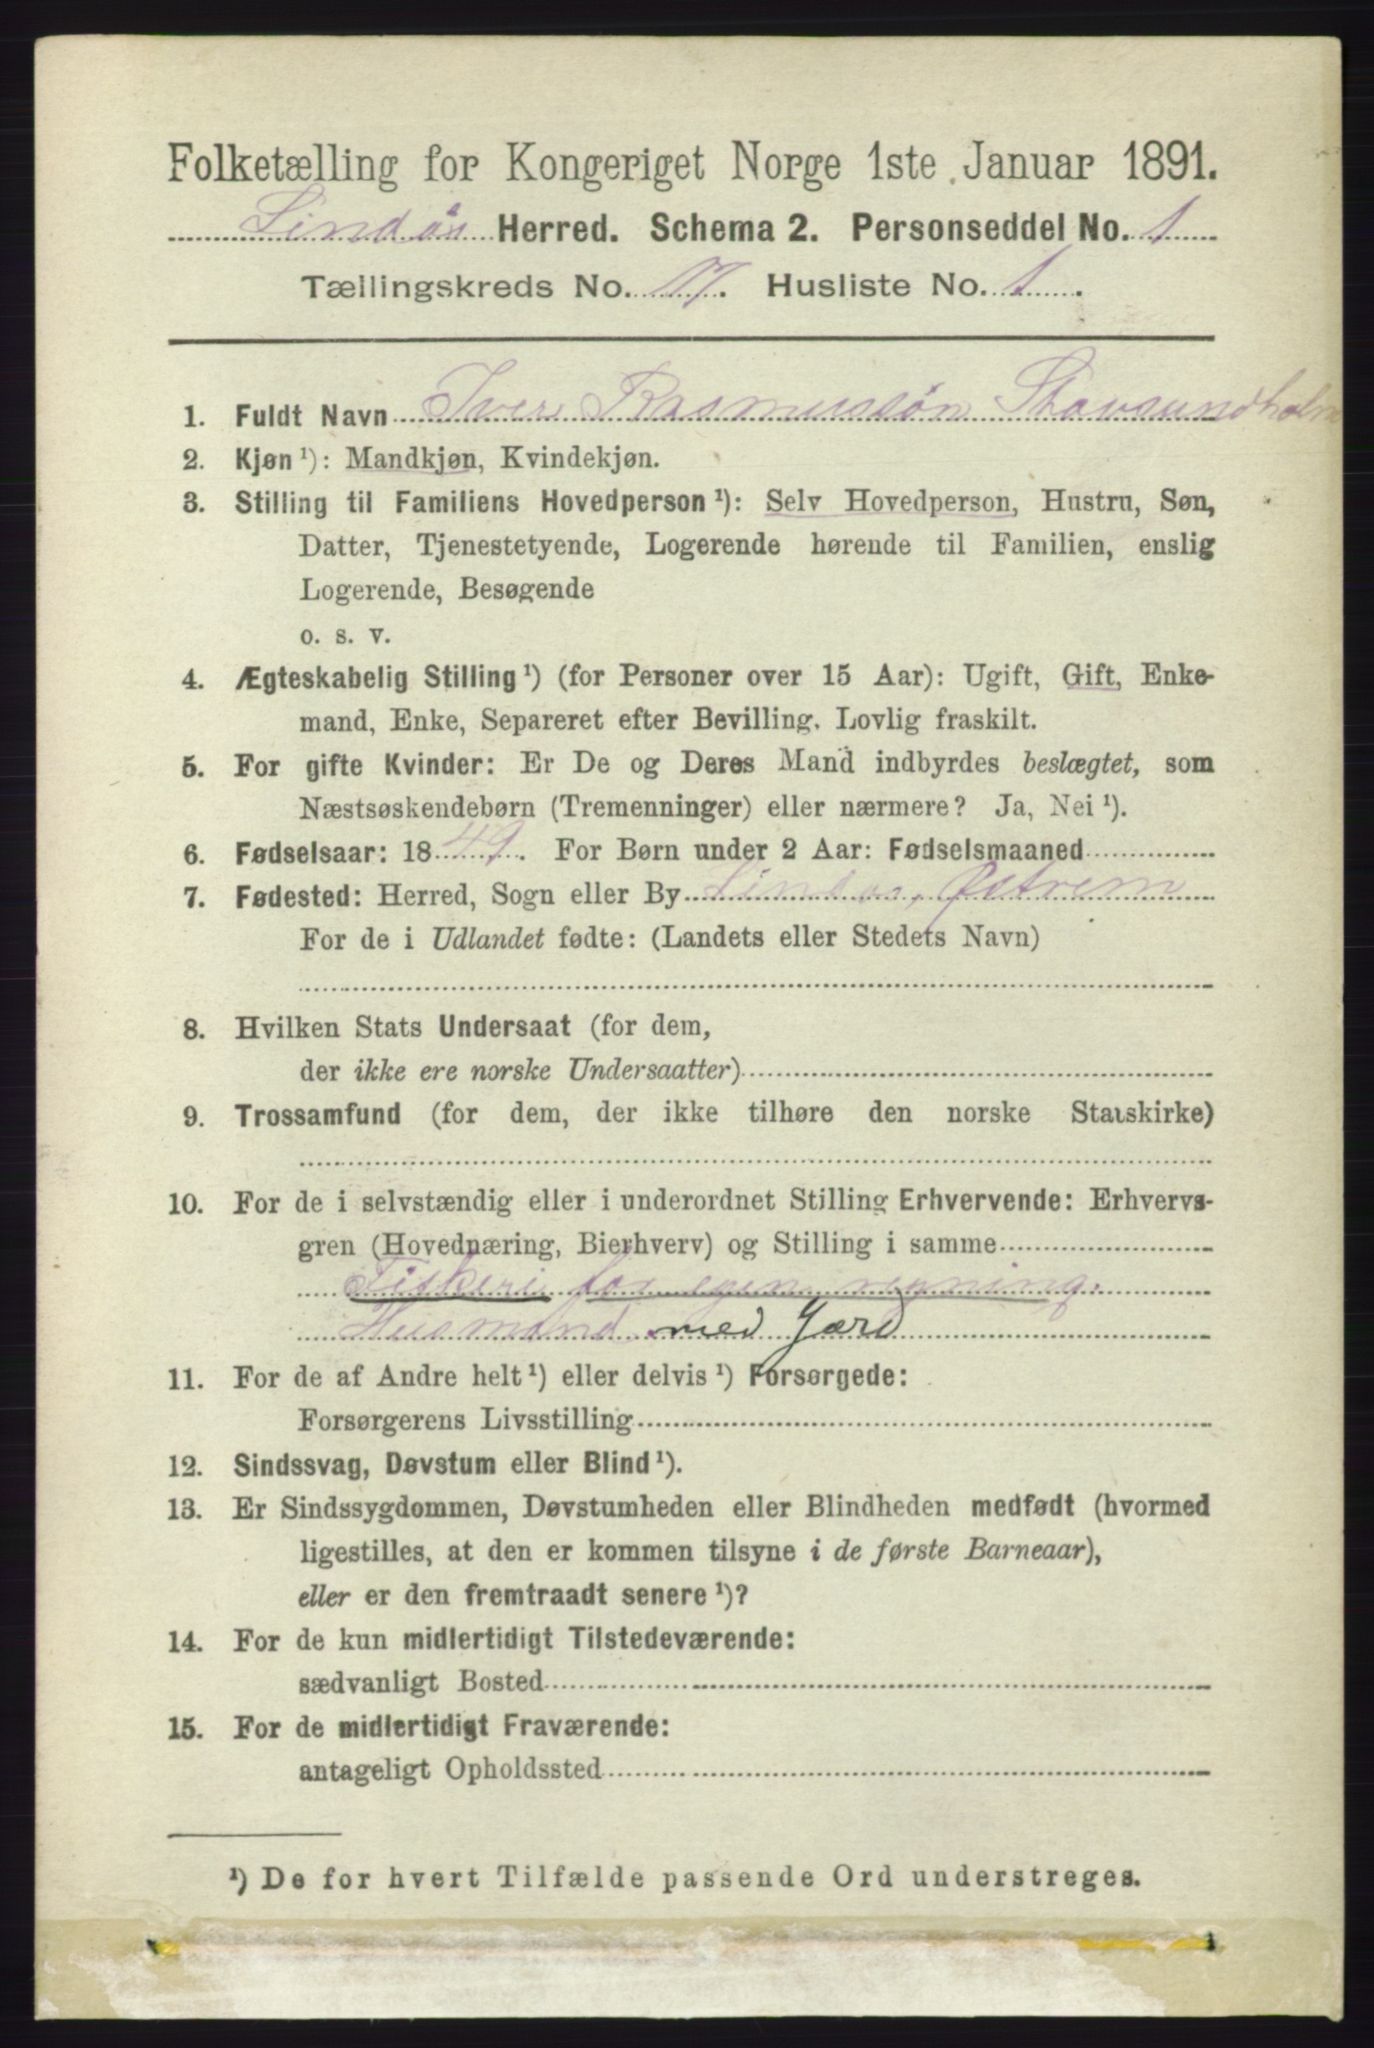 Folketælling for Kongeriget Norge 1ste Januar 1891.
Lindås Herred. Schema 2. Personseddel No. 1
Tællingskreds No. 17. Husliste No. 1.
1. Fuldt Navn Iver Rasmussøn Stavsundholm
2. Kjøn¹): Mandkjøn, Kvindekjøn.
3. Stilling til Familiens Hovedperson¹): Selv Hovedperson, Hustru, Søn,
Datter, Tjenestetyende, Logerende hørende til Familien, enslig
Logerende, Besøgende
o. s. v.
4. Ægteskabelig Stilling¹) (for Personer over 15 Aar): Ugift, Gift, Enke-
mand, Enke, Separeret efter Bevilling. Lovlig fraskilt.
5. For gifte Kvinder: Er De og Deres Mand indbyrdes beslægtet, som
Næstsøskendebørn (Tremenninger) eller nærmere? Ja, Nei¹).
6. Fødselsaar: 1849. For Børn under 2 Aar: Fødselsmaaned
7. Fødested: Herred, Sogn eller By Lindås,
For de i Udlandet fødte: (Landets eller Stedets Navn)
8. Hvilken Stats Undersaat (for dem,
der ikke ere norske Undersaatter)
9. Trossamfund (for dem, der ikke tilhøre den norske Statskirke)
10. For de i selvstændig eller i underordnet Stilling Erhvervende: Erhvervs-
gren (Hovednæring, Bierhverv) og Stilling i samme
Fiskeri for egen regning.
Husmand med Jord
11. For de af Andre helt¹) eller delvis¹) Forsørgede:
Forsørgerens Livsstilling
12. Sindssvag, Døvstum eller Blind¹).
13. Er Sindssygdommen, Døvstumheden eller Blindheden medfødt (hvormed
ligestilles, at den er kommen tilsyne i de første Barneaar),
eller er den fremtraadt senere¹)?
14. For de kun midlertidigt Tilstedeværende:
sædvanligt Bosted
15. For de midlertidigt Fraværende:
antageligt Opholdssted
¹) De for hvert Tilfælde passende Ord understreges.